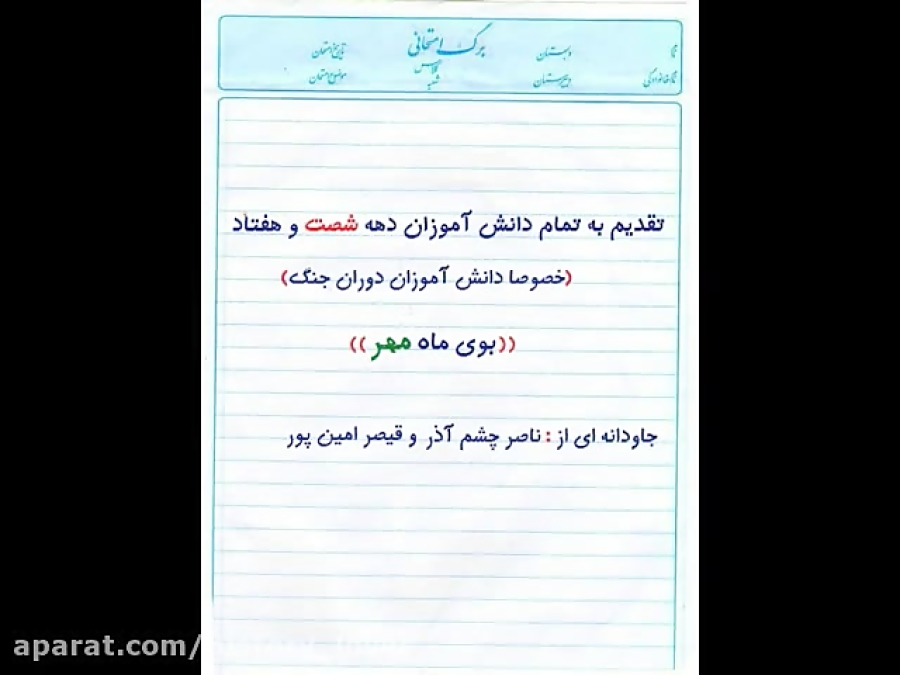 برگ امتحانی
نام
دبستان
تاریخ امتحان
نام خانوادگی
دبیرستان
کلاس
شعبه
موضوع امتحان
تقدیم به تمام دانش آموزان دهه شصت و هفتاد
(خصوصا دانش آموزان دوران جنگ)
((بوی ماه مهر))
جاودانه ای از : ناصر چشم آذر و قیصر امین پور
aparat.com/